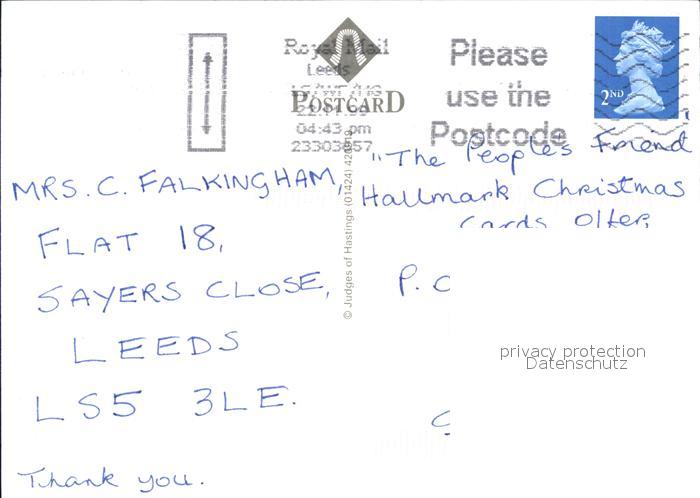 Royal Mail
Leeds
04:43 pm
23303657
POSTCARD
Please
use the
Postcode
2ND
© Judges of Hastings (01424) 420919
MRS. C. FALKINGHAM,
FLAT 18,
SAYERS CLOSE,
LEEDS
LS5 3LE.
Thank you.
"The People's Friend
Hallmark Christmas
Cards Offer,
P.
privacy protection
Datenschutz